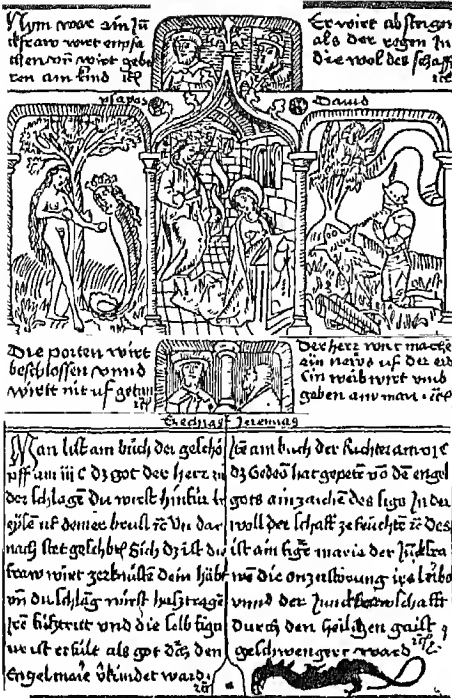 Nym war ain Jū
ckfraw wirt enpfa
chen vn̄ wirt gebe
ren ain kind ıc̄
Er wirt ab steigen
als der regen In
die wol des schaff
ysayas
Dauid
Die porten wirt
beschlossen vnnd
wirtt nit uf getun
Der herr wirt mache
ain news uf der erd
Ein weib wirt vmb
geben ain man
Ezechiel
Jeremias
Man list am bůch der geschö
pff am iii C dz got der herr zu
der schlāgē Du wirst hinfür
uf deiner brust
nach stet geschribē Sich dz ist die
fraw wirt zerknüstē dein häbt
vn̄ du schlāg wirst
und die selb figu
ur ist erfült als got dch den
Engel marie vkindet ward
am buch der Richter am vi C
dz Gedeon hat gepetē vō dē engel
gots ain zaichen des sigs In der
woll der schaff
ist ain figē maria der Jūckfra
wē die on zustörung irs leibs
vnnd der Junckfrowschafft
Durch den heiligen gaist
geschwengert ward